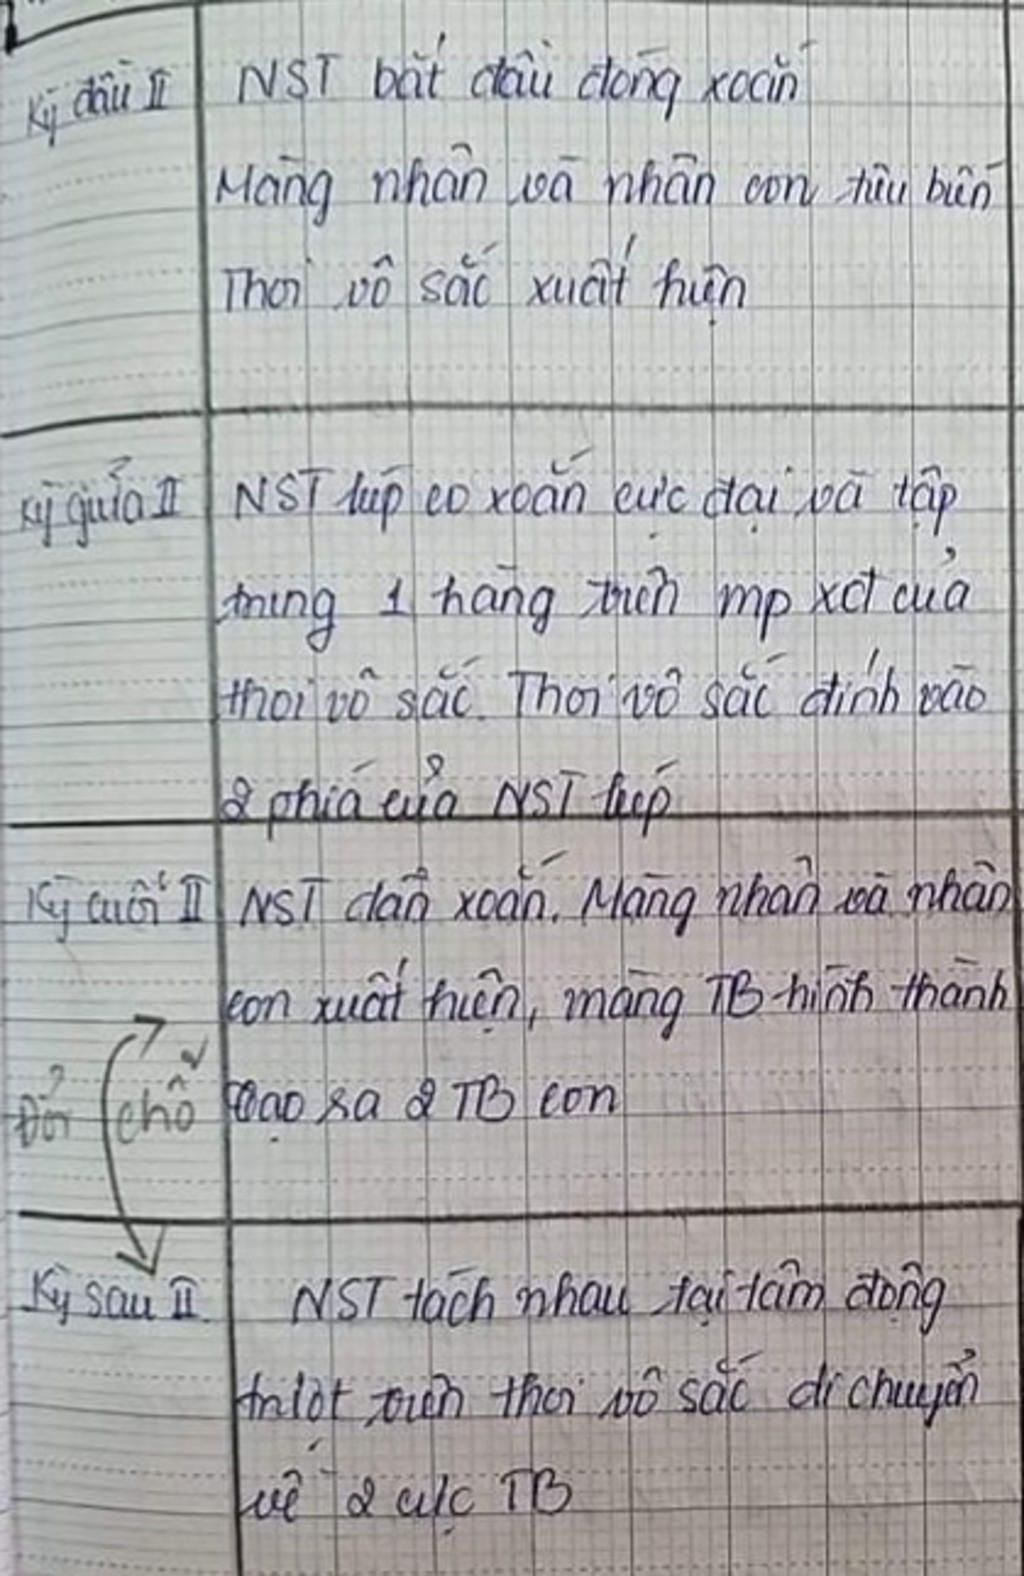 Kỳ đầu II
NST bắt đầu đóng xoắn
Màng nhân và nhân con tiêu biến
Thoi vô sắc xuất hiện
Kỳ giữa II
NST kép co xoắn cực đại và tập
trung 1 hàng trên mp xđ của
thoi vô sắc. Thoi vô sắc đính vào
2 phía của NST kép
Kỳ cuối II
NST dãn xoắn. Màng nhân và nhân
con xuất hiện, màng TB hình thành
tạo ra 2 TB con
Đổi chỗ
Kỳ sau II
NST tách nhau tại tâm động
trượt trên thoi vô sắc di chuyển
về 2 cực TB